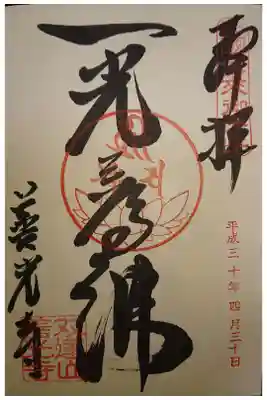 奉拝
平成三十年 四月三十日
一光三尊佛
善光寺